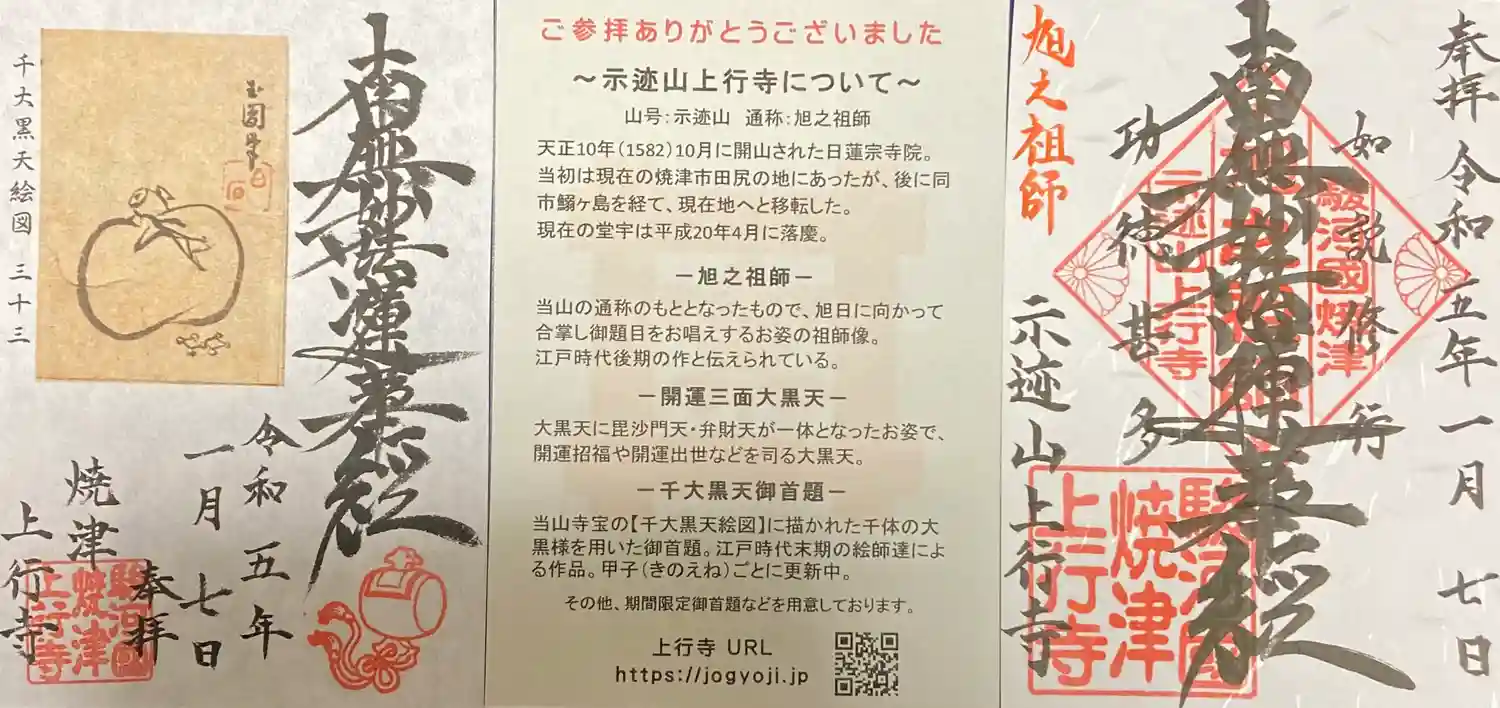 千大黒天絵図 三十三
南無妙法蓮華経
令和五年
一月七日
奉拝
焼津
上行寺
駿河國
焼津
上行寺
ご参拝ありがとうございました
～示迹山上行寺について～
山号：示迹山 通称：旭之祖師
天正10年（1582）10月に開山された日蓮宗寺院。
当初は現在の焼津市田尻の地にあったが、後に同
市鰯ヶ島を経て、現在地へと移転した。
現在の堂宇は平成20年4月に落慶。
－旭之祖師－
当山の通称のもととなったもので、旭日に向かって
合掌し御題目をお唱えするお姿の祖師像。
江戸時代後期の作と伝えられている。
－開運三面大黒天－
大黒天に毘沙門天・弁財天が一体となったお姿で、
開運招福や開運出世などを司る大黒天。
－千大黒天御首題－
当山寺宝の【千大黒天絵図】に描かれた千体の大
黒様を用いた御首題。江戸時代末期の絵師達によ
る作品。甲子（きのえね）ごとに更新中。
その他、期間限定御首題などを用意しております。
上行寺 URL
https://jogyoji.jp
奉拝 令和五年一月七日
如説修行
南無妙法蓮華経
功徳甚多
旭之祖師
示迹山上行寺
駿河國焼津
示迹山上行寺
駿河國
焼津
上行寺